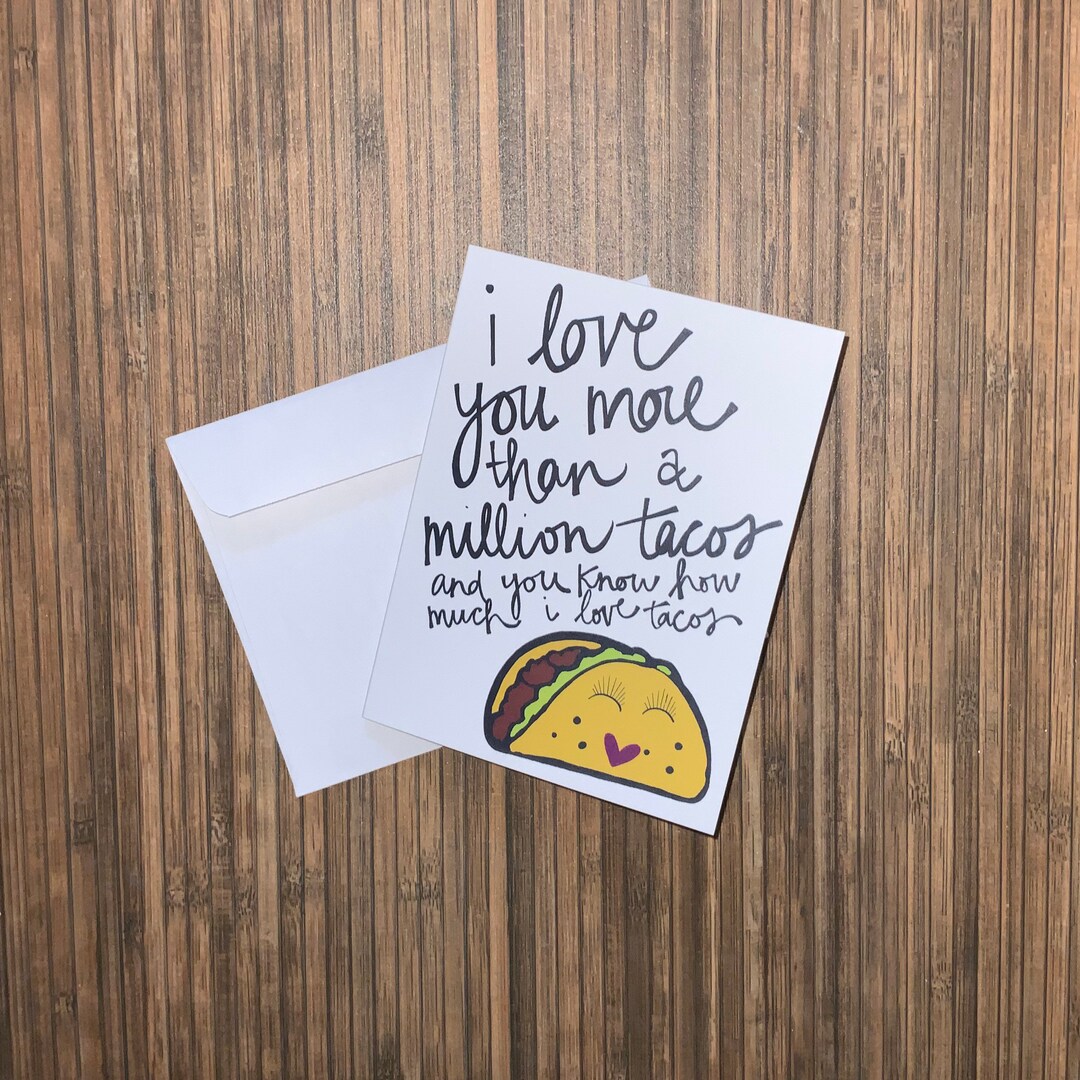 i love
you more
than a
million tacos
and you know how
much i love tacos